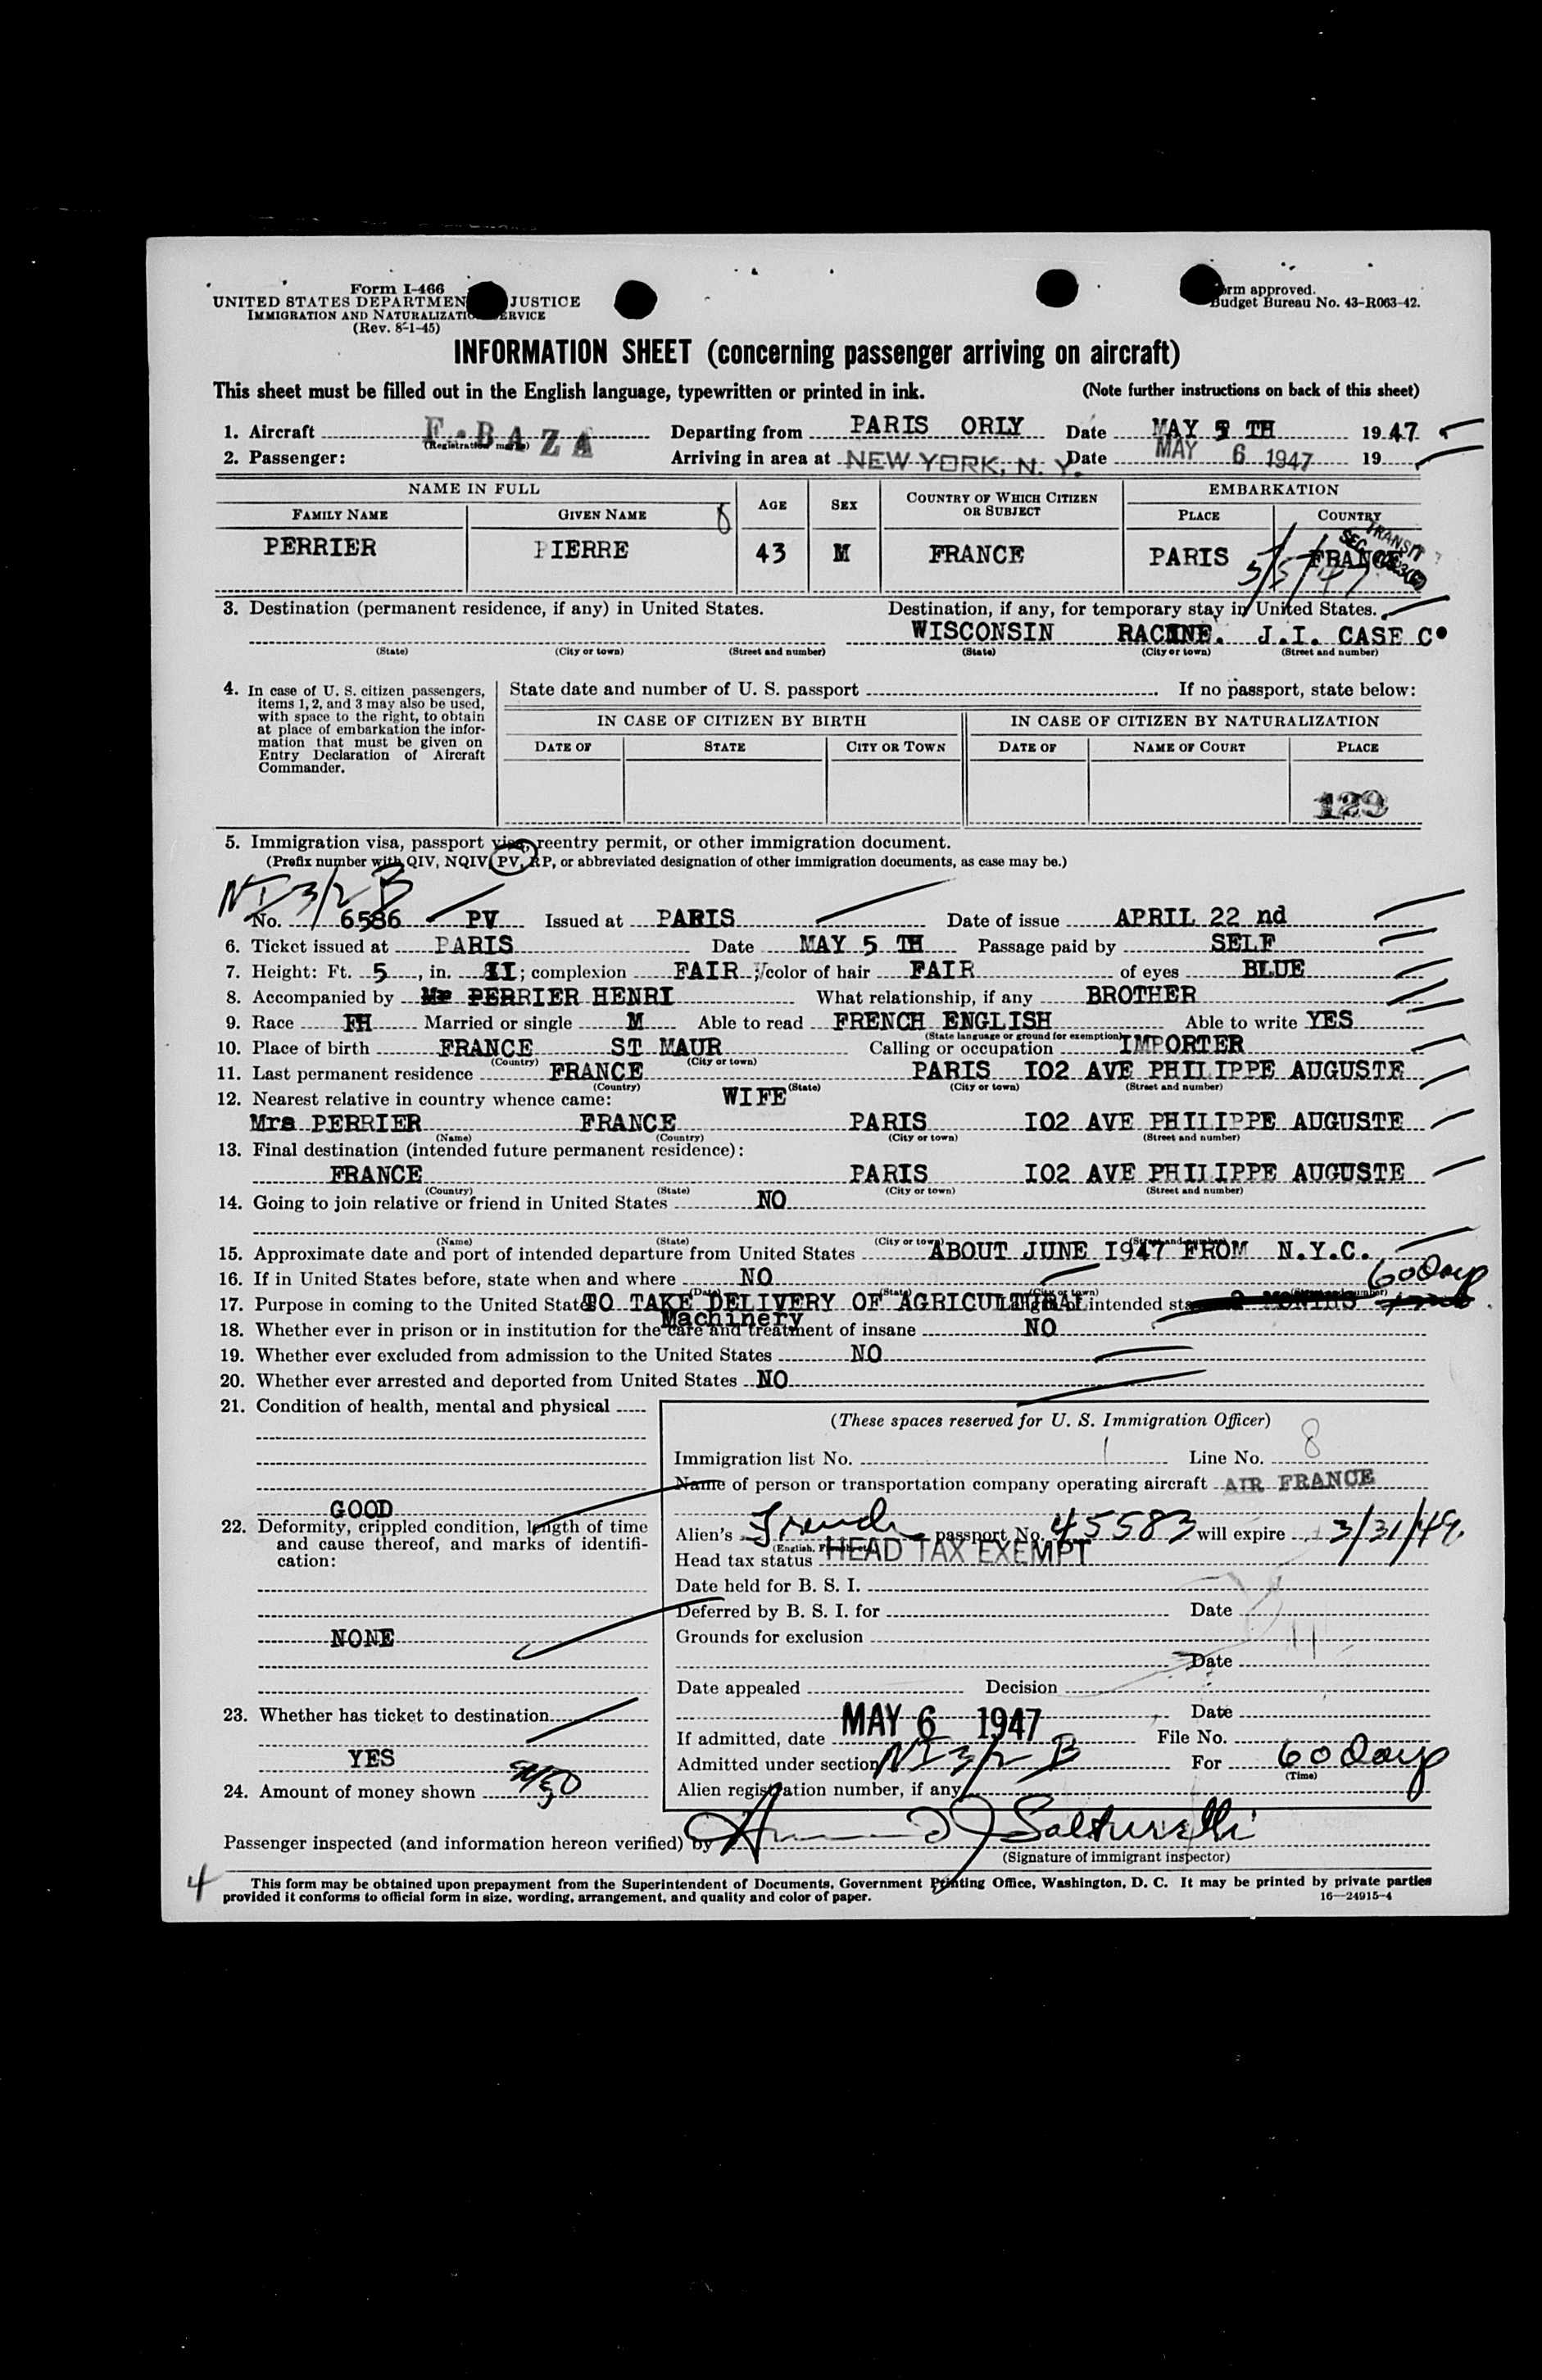 Form I-466
UNITED STATES DEPARTMEN JUSTICE
IMMIGRATION AND NATURALIZATIO ERVICE
(Rev. 8-1-45)
rm approved.
Budget Bureau No. 43-R063-42.
INFORMATION SHEET (concerning passenger arriving on aircraft)
This sheet must be filled out in the English language, typewritten or printed in ink. (Note further instructions on back of this sheet)
1. Aircraft F-BAZA Departing from PARIS ORLY Date MAY 5 TH 1947
(Registration marks)
2. Passenger: Arriving in area at NEW YORK, N. Y. Date MAY 6 1947 19
NAME IN FULL AGE SEX COUNTRY OF WHICH CITIZEN OR SUBJECT EMBARKATION
FAMILY NAME GIVEN NAME 8 PLACE COUNTRY
PERRIER PIERRE 43 M FRANCE PARIS FRANCE
TRANSIT
5/5/47
3. Destination (permanent residence, if any) in United States. Destination, if any, for temporary stay in United States.
WISCONSIN RACINE. J.I. CASE Co
(State) (City or town) (Street and number) (State) (City or town) (Street and number)
4. In case of U. S. citizen passengers, items 1, 2, and 3 may also be used, with space to the right, to obtain at place of embarkation the information that must be given on Entry Declaration of Aircraft Commander.
State date and number of U. S. passport If no passport, state below:
IN CASE OF CITIZEN BY BIRTH IN CASE OF CITIZEN BY NATURALIZATION
DATE OF STATE CITY OR TOWN DATE OF NAME OF COURT PLACE
129
5. Immigration visa, passport visa, reentry permit, or other immigration document.
(Prefix number with QIV, NQIV, PV, RP, or abbreviated designation of other immigration documents, as case may be.)
NI 3/2 B
No. 6586 PV Issued at PARIS Date of issue APRIL 22 nd
6. Ticket issued at PARIS Date MAY 5 TH Passage paid by SELF
7. Height: Ft. 5, in. II; complexion FAIR; color of hair FAIR of eyes BLUE
8. Accompanied by Mr PERRIER HENRI What relationship, if any BROTHER
9. Race FH Married or single M Able to read FRENCH ENGLISH Able to write YES
(State language or ground for exemption)
10. Place of birth FRANCE ST MAUR Calling or occupation IMPORTER
(Country) (City or town)
11. Last permanent residence FRANCE PARIS I02 AVE PHILIPPE AUGUSTE
(Country) (State) (City or town) (Street and number)
12. Nearest relative in country whence came: WIFE
Mrs PERRIER FRANCE PARIS I02 AVE PHILIPPE AUGUSTE
(Name) (Country) (City or town) (Street and number)
13. Final destination (intended future permanent residence):
FRANCE PARIS I02 AVE PHILIPPE AUGUSTE
(Country) (State) (City or town) (Street and number)
14. Going to join relative or friend in United States NO
(Name) (State) (City or town) (Street and number)
15. Approximate date and port of intended departure from United States ABOUT JUNE I947 FROM N.Y.C.
16. If in United States before, state when and where NO
(Date) (State) (City or town) (Street and number)
60 Days
17. Purpose in coming to the United States TO TAKE DELIVERY OF AGRICULTURAL Length of intended stay 2 MONTHS
Machinery
18. Whether ever in prison or in institution for the care and treatment of insane NO
19. Whether ever excluded from admission to the United States NO
20. Whether ever arrested and deported from United States NO
21. Condition of health, mental and physical
GOOD
22. Deformity, crippled condition, length of time and cause thereof, and marks of identification:
NONE
23. Whether has ticket to destination
YES
24. Amount of money shown
(These spaces reserved for U. S. Immigration Officer)
Immigration list No. 1 Line No. 8
Name of person or transportation company operating aircraft AIR FRANCE
Alien's French passport No. 45583 will expire 3/31/49.
Head tax status HEAD TAX EXEMPT
Date held for B. S. I.
Deferred by B. S. I. for Date
Grounds for exclusion
Date
Date appealed Decision
Date
If admitted, date MAY 6 1947 File No.
Admitted under section NI 3/2 B For 60 Days
(Time)
Alien registration number, if any
Passenger inspected (and information hereon verified) by
(Signature of immigrant inspector)
4
This form may be obtained upon prepayment from the Superintendent of Documents, Government Printing Office, Washington, D. C. It may be printed by private parties
provided it conforms to official form in size, wording, arrangement, and quality and color of paper. 16—24915-4